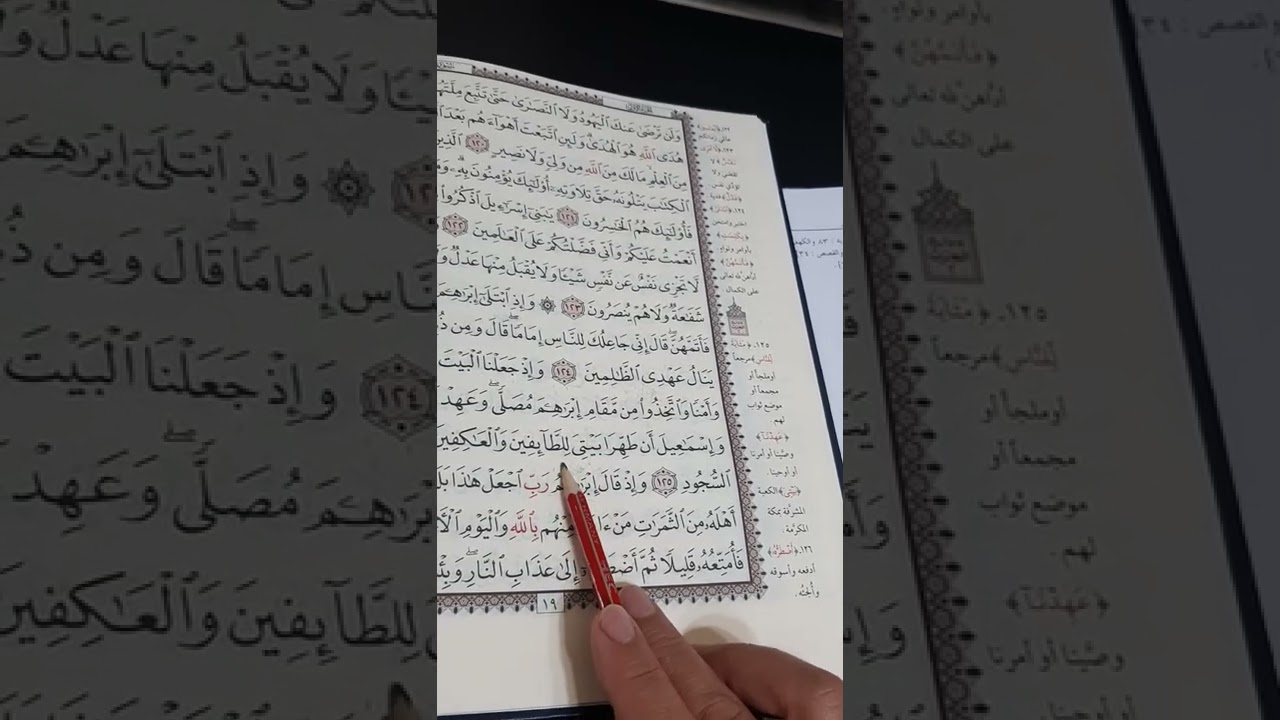 وَلَن تَرْضَىٰ عَنكَ ٱلْيَهُودُ وَلَا ٱلنَّصَٰرَىٰ حَتَّىٰ تَتَّبِعَ مِلَّتَهُ
هُدَى ٱللَّهِ هُوَ ٱلْهُدَىٰ وَلَئِنِ ٱتَّبَعْتَ أَهْوَآءَهُم بَعْدَ
مِنَ ٱلْعِلْمِ مَا لَكَ مِنَ ٱللَّهِ مِن وَلِيٍّ وَلَا نَصِيرٍ ١٢٠ ٱلَّذِينَ
ٱلْكِتَٰبَ يَتْلُونَهُۥ حَقَّ تِلَاوَتِهِۦٓ أُو۟لَٰٓئِكَ يُؤْمِنُونَ بِهِۦ
فَأُو۟لَٰٓئِكَ هُمُ ٱلْخَٰسِرُونَ ١٢١ يَٰبَنِىٓ إِسْرَٰٓءِيلَ ٱذْكُرُوا۟
أَنْعَمْتُ عَلَيْكُمْ وَأَنِّى فَضَّلْتُكُمْ عَلَى ٱلْعَٰلَمِينَ ١٢٢
لَّا تَجْزِى نَفْسٌ عَن نَّفْسٍ شَيْـًٔا وَلَا يُقْبَلُ مِنْهَا عَدْلٌ وَ
شَفَٰعَةٌ وَلَا هُمْ يُنصَرُونَ ١٢٣ ۞ وَإِذِ ٱبْتَلَىٰٓ إِبْرَٰهِـۧمَ
فَأَتَمَّهُنَّ قَالَ إِنِّى جَاعِلُكَ لِلنَّاسِ إِمَامًا قَالَ وَمِن ذُ
يَنَالُ عَهْدِى ٱلظَّٰلِمِينَ ١٢٤ وَإِذْ جَعَلْنَا ٱلْبَيْتَ
وَأَمْنًا وَٱتَّخِذُوا۟ مِن مَّقَامِ إِبْرَٰهِـۧمَ مُصَلًّى وَعَهِدْ
وَإِسْمَٰعِيلَ أَن طَهِّرَا بَيْتِىَ لِلطَّآئِفِينَ وَٱلْعَٰكِفِينَ
ٱلسُّجُودِ ١٢٥ وَإِذْ قَالَ رَبِّ ٱجْعَلْ هَٰذَا بَلَ
أَهْلَهُۥ مِنَ ٱلثَّمَرَٰتِ مَنْ ءَا مِنْهُم بِٱللَّهِ وَٱلْيَوْمِ ٱلْ
فَأُمَتِّعُهُۥ قَلِيلًا ثُمَّ إِلَىٰ عَذَابِ ٱلنَّارِ وَبِئْ
١٩
على الكمال
١٢٥. ﴿مَثَابَةً
لِّلنَّاسِ﴾ مرجعاً
أو ملجأ أو
مجمعاً أو
موضع ثواب
لهم.
﴿عَهِدْنَا﴾
وصَّينا أو أمرنا
أو أوحينا.
﴿بَيْتِيَ﴾ الكعبة
المشرفة بمكة
المكرَّمة.
١٢٦. ﴿أَضْطَرُّهُ﴾
أدفعه وأسوقه
وألجئه.